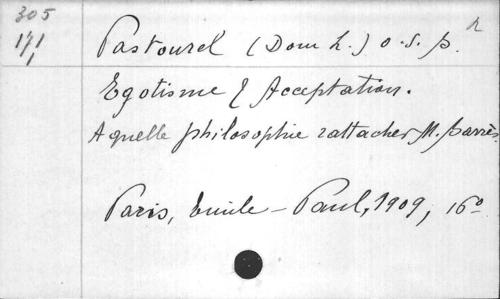 305
171
1
Pastourel (Dom L.) o.s.b. r
Egotisme & Acceptation.
A quelle philosophie rattacher M. Barrès.
Paris, Emile-Paul, 1909, 16º